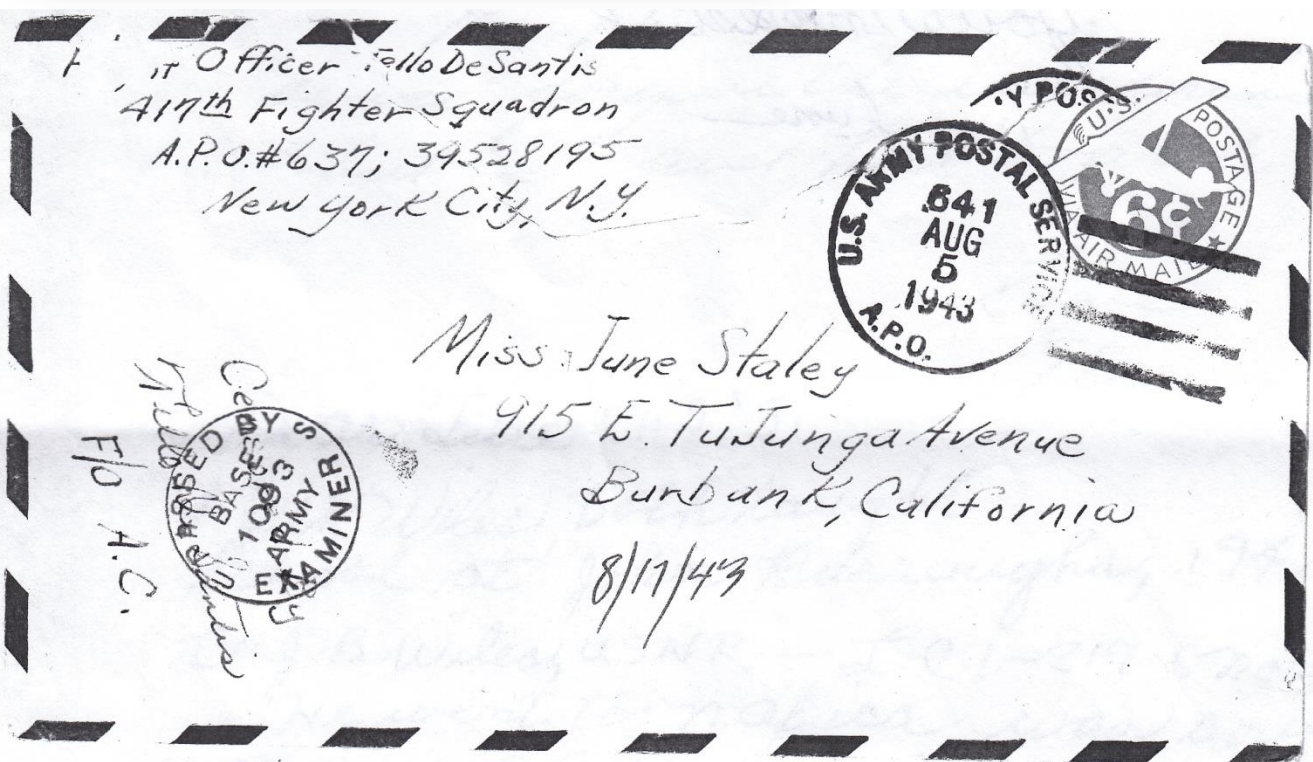 Officer Tello DeSantis
417th Fighter Squadron
A.P.O.#637; 39528195
New York City, N.Y.
U.S. ARMY POSTAL SERVICE
641
AUG
5
1943
A.P.O.
U.S. POSTAGE
6¢
VIA AIR MAIL
Miss June Staley
915 E. TuJunga Avenue
Burbank, California
8/17/43
PASSED BY
BASE
ARMY
EXAMINER
F/O A.C.